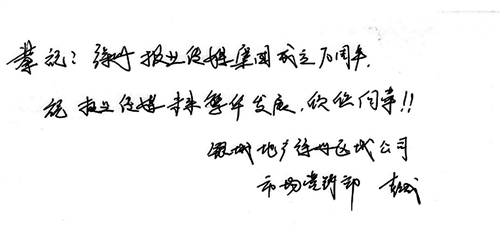 恭祝：徐州报业传媒集团成立70周年，
祝 报业传媒 未来繁华发展，欣欣向荣!!
银城地产徐州区域公司
市场营销部 李成